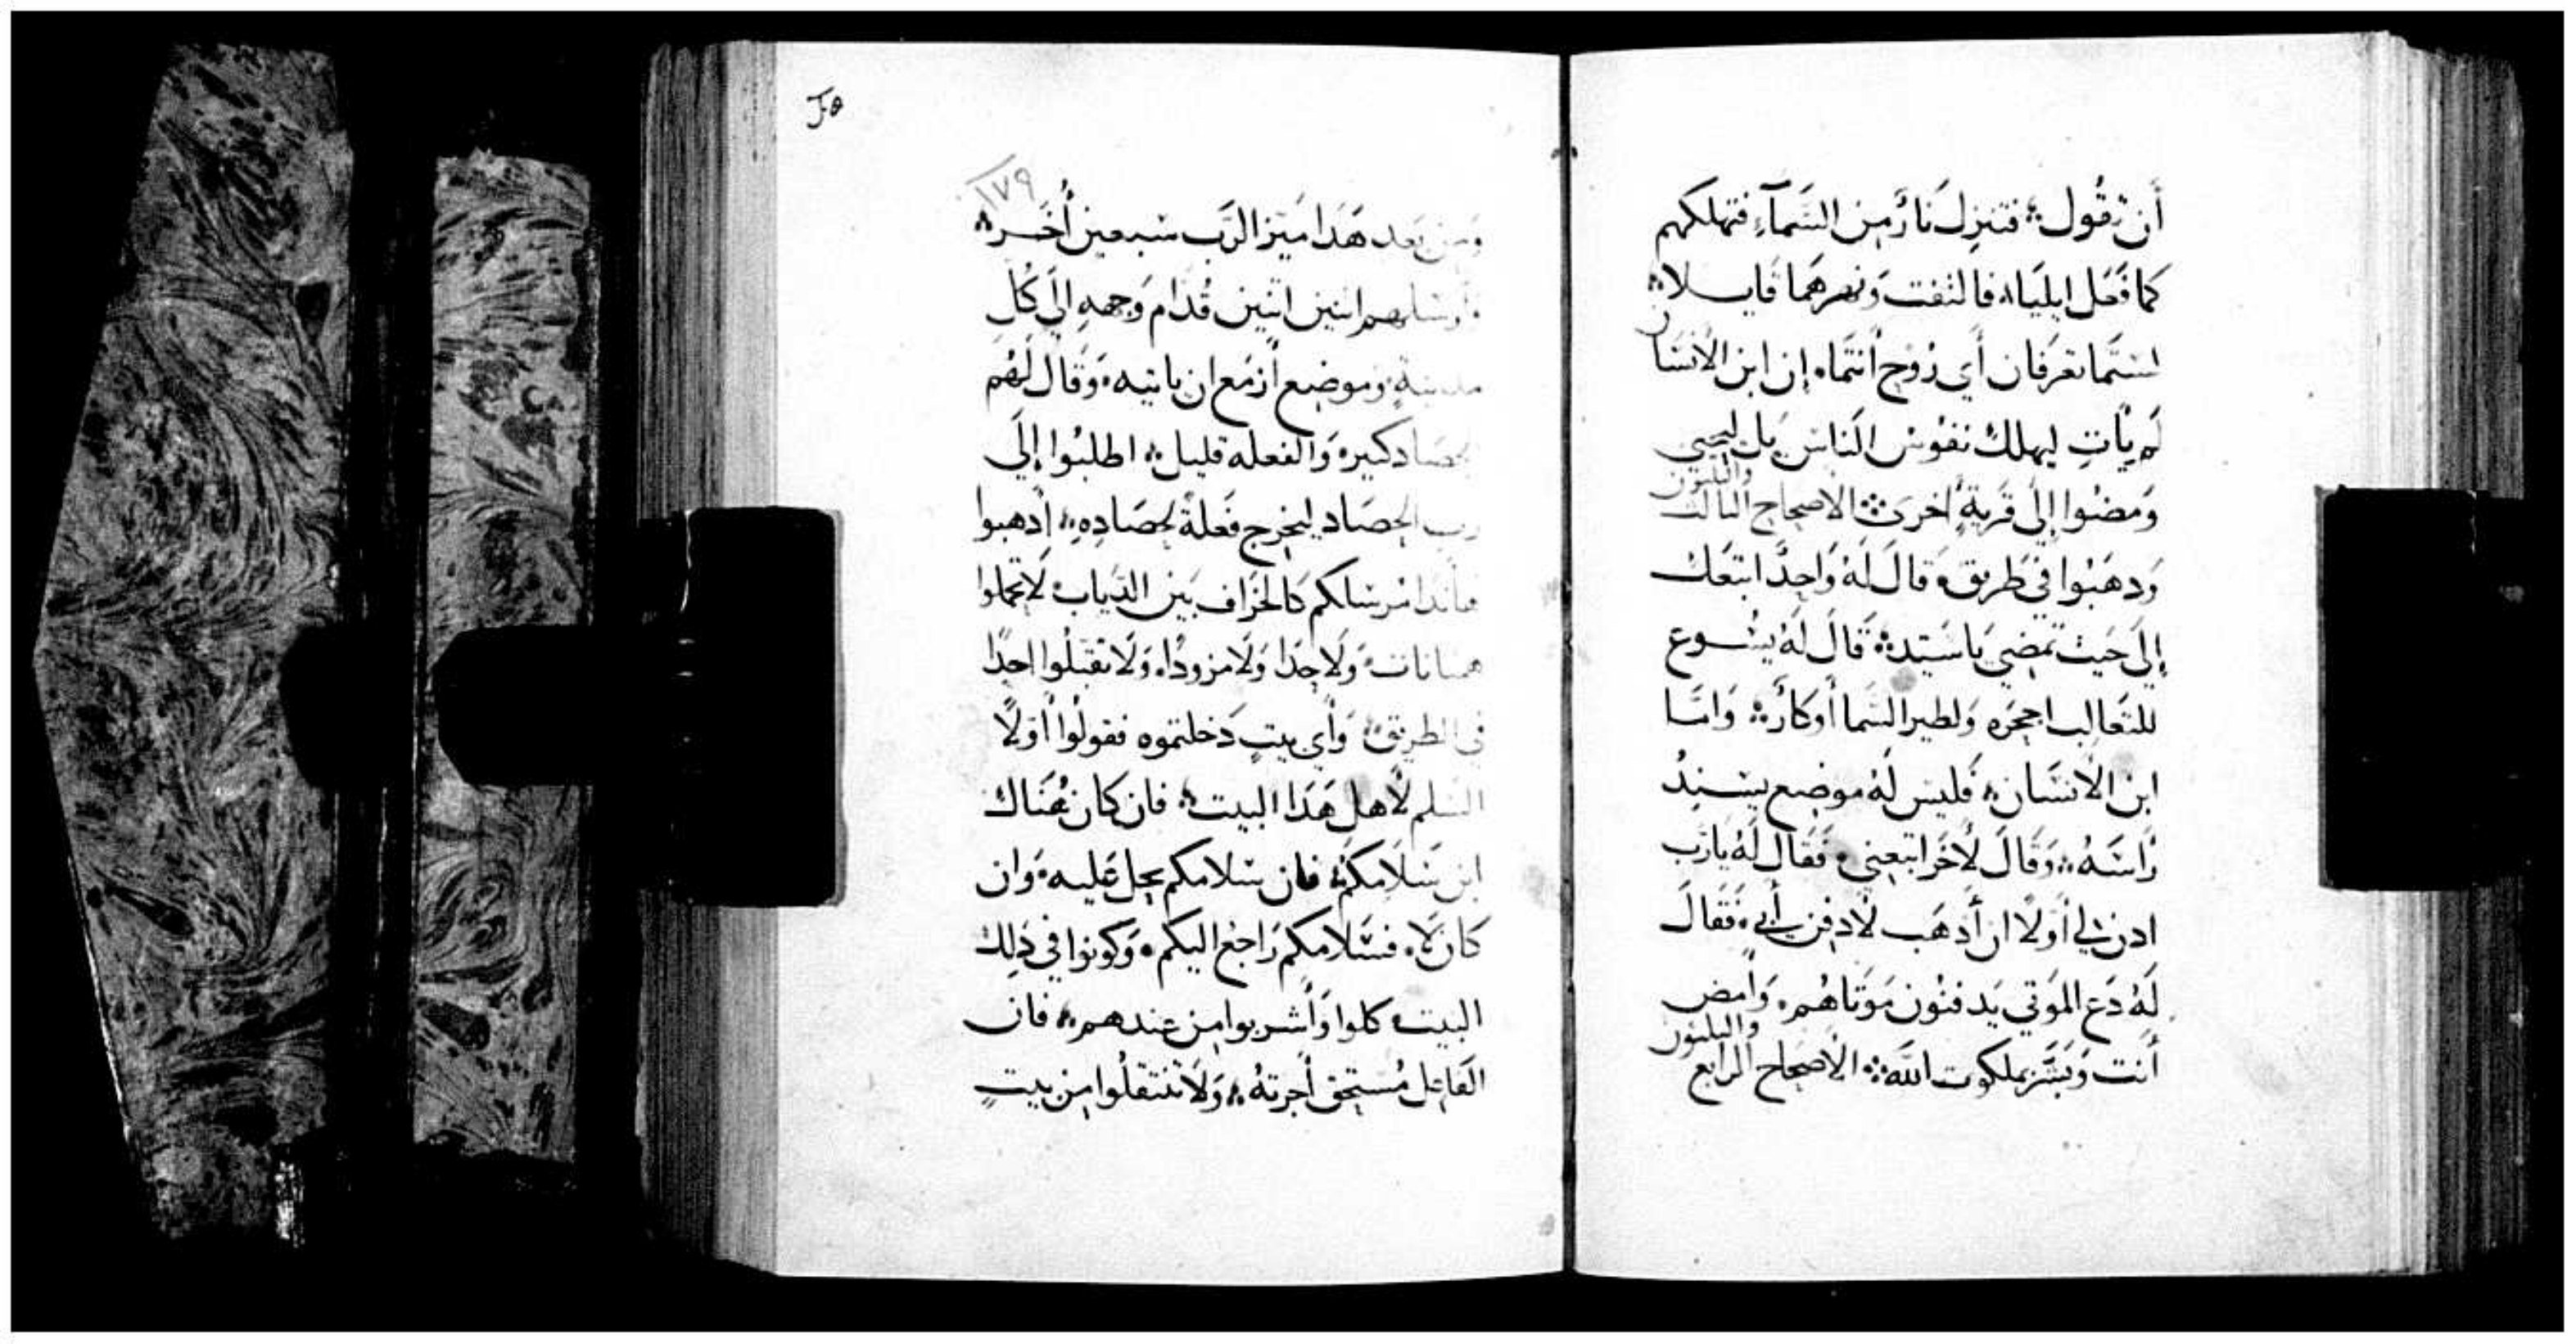 أن نقول؛ فتنزل نارٌ من السمآءِ فتهلكهم
كما فعَل ايلياء، فالتفت ونهرهما قايـــلا؛
لستما تعرفان أي رُوحٍ أنتما، إن ابن الأنسان
لم يأتِ ليهلك نفوس الناس بل ليحيي
ومضوا إلى قريةٍ أخرى؛ الأصحاح الثالث والثلثون
ودهبوا في طريق، وقالَ لهُ واحدًا اتبعك
إلى حيث تمضي ياسيد؛ قالَ لهُ يســوع
للتعالب اجحره ولطير السما أوكارٌ؛ وامَّا
ابن الانسان، فليس لهُ موضع يســندُ
رَاسَهُ، وقالَ لأخر اتبعني، فقال لَهُ يارَب
ادن لي أولاً ان أدهَب لادفن أبي، فقالَ
لَهُ دَع الموَتي يَدفنون موَتاهُم، وَأمض
أنت وَبَشّر بملكوت الله؛ الأصحاح الرابع والثلثون
٥٦
١٧٩
وَمن بَعد هَدا ميَّز الرَب سبعين أُخَــر؛
وأرسلهم اثنين اثنين قُدام وَجههِ الَي كُلِ
مدينةٍ وموضع أزمَع ان ياتيه، وقَال لَهُم
الحصاد كبير، والفعله قليل، اطلبُوا إلَي
رب الحصَاد ليخرج فَعلةً لحصَادِهِ، أدهبوا
هاندا مُرسلكم كالخرَاف بَين الديَاب، لاَتحملوا
هميانات، وَلاَحِدَا وَلاَمزودًا، وَلاَتقبَلُوا احدًا
في الطريق، وَأي بيتٍ دَخلتموه فقولُوا أولاً
السَلم لأهل هَدَا البيت، فان كان هُناك
ابن سَلاَمكم، فان سلامكم يحل عَليه، وَان
كان لاَ، فسَلامكم رَاجع اليكم، وَكونوا في دَلِك
البيت، كلوا وَأشربوا من عندهم، فان
الفَاعِل مُستحق أُجرتهُ، وَلاَتنتقلُوا مِن بيتٍ